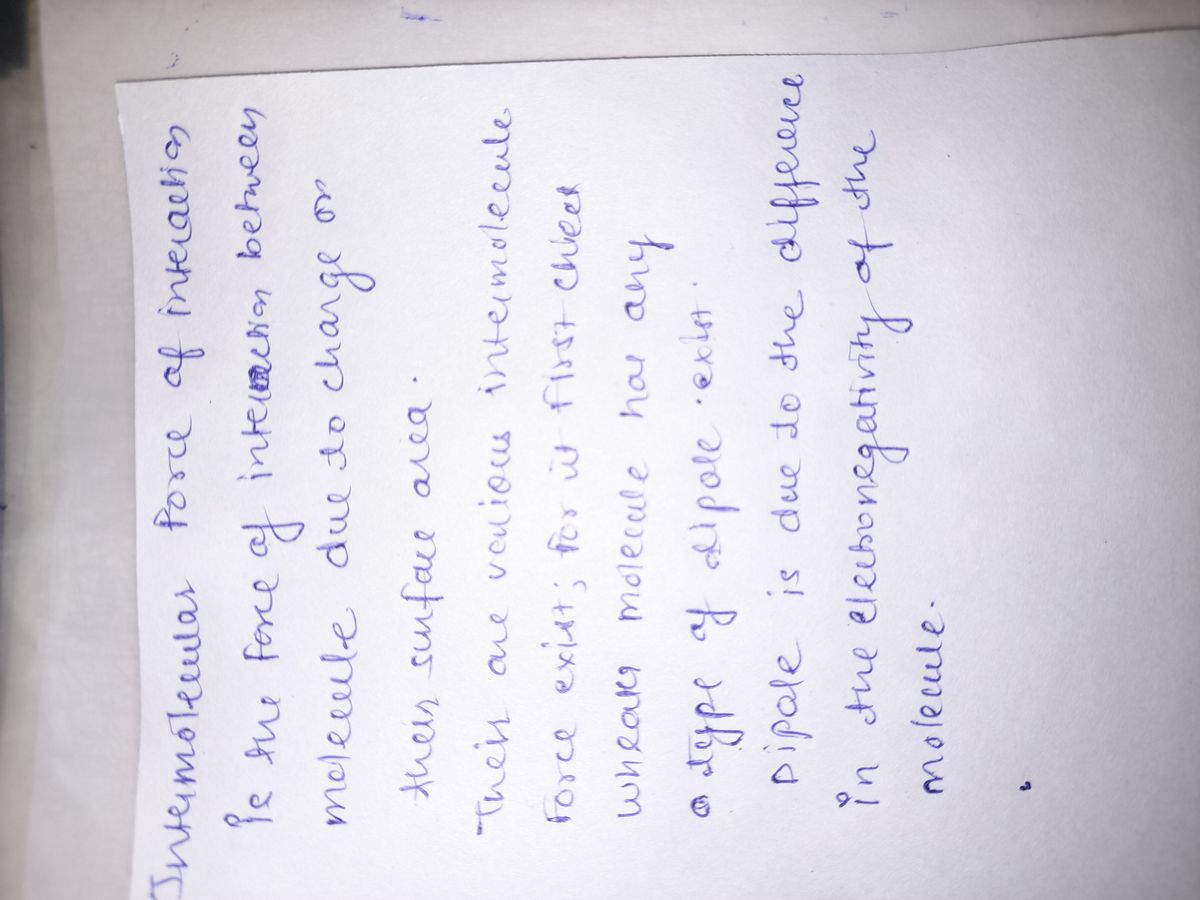 Intermolecular force of interaction
is the force of interaction between
molecule due to charge on
their surface area.
Their are various intermolecule
force exist; for it first check
wheaks molecule has any
type of dipole exist.
Dipole is due to the difference
in the electronegativity of the
molecule.